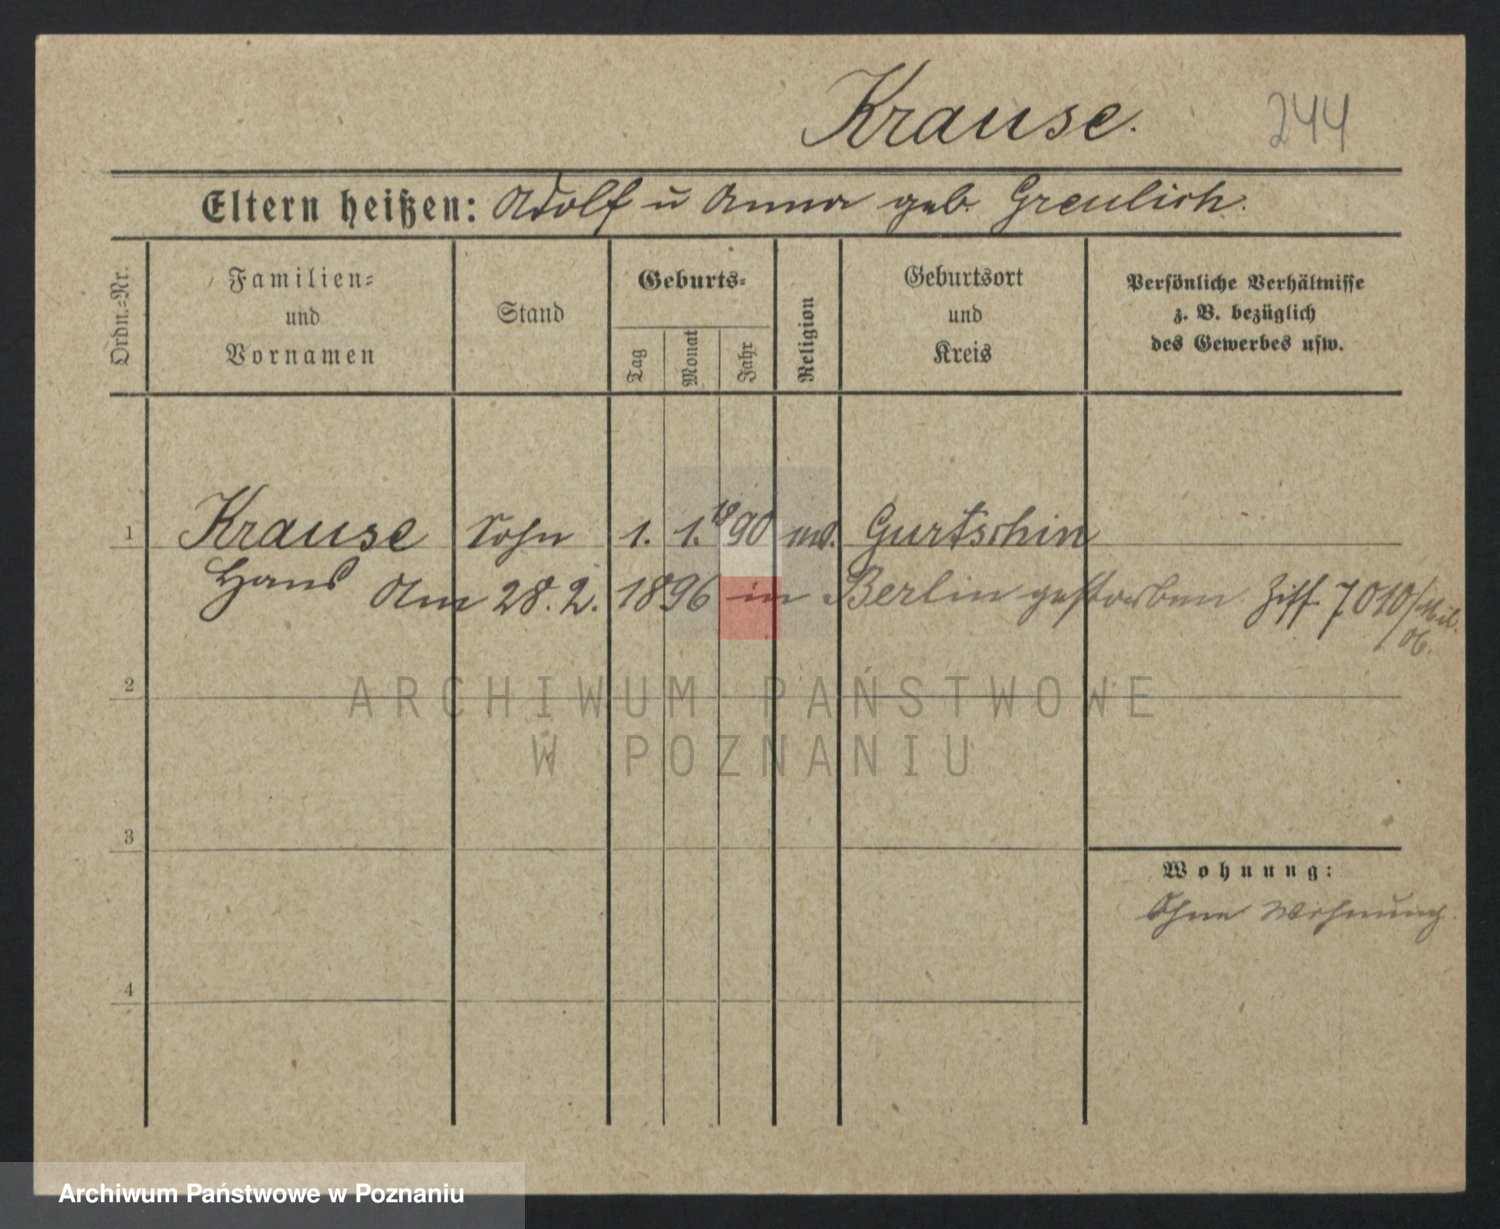 Krause. 244
Eltern heißen: Adolf u Anna geb. Greulich.
Ordn.=Nr.
Familien=
und
Vornamen
Stand
Geburts=
Tag
Monat
Jahr
Religion
Geburtsort
und
Kreis
Persönliche Verhältnisse
z. B. bezüglich
des Gewerbes usw.
1 Krause Sohn 1. 1. 1890 Gurtschin
Hans Am 28. 2. 1896 in Berlin gestorben Ziff 7010/Mil.
06.
2
ARCHIWUM PAŃSTWOWE
W POZNANIU
3
Wohnung:
Ohne Wohnung.
4
Archiwum Państwowe w Poznaniu